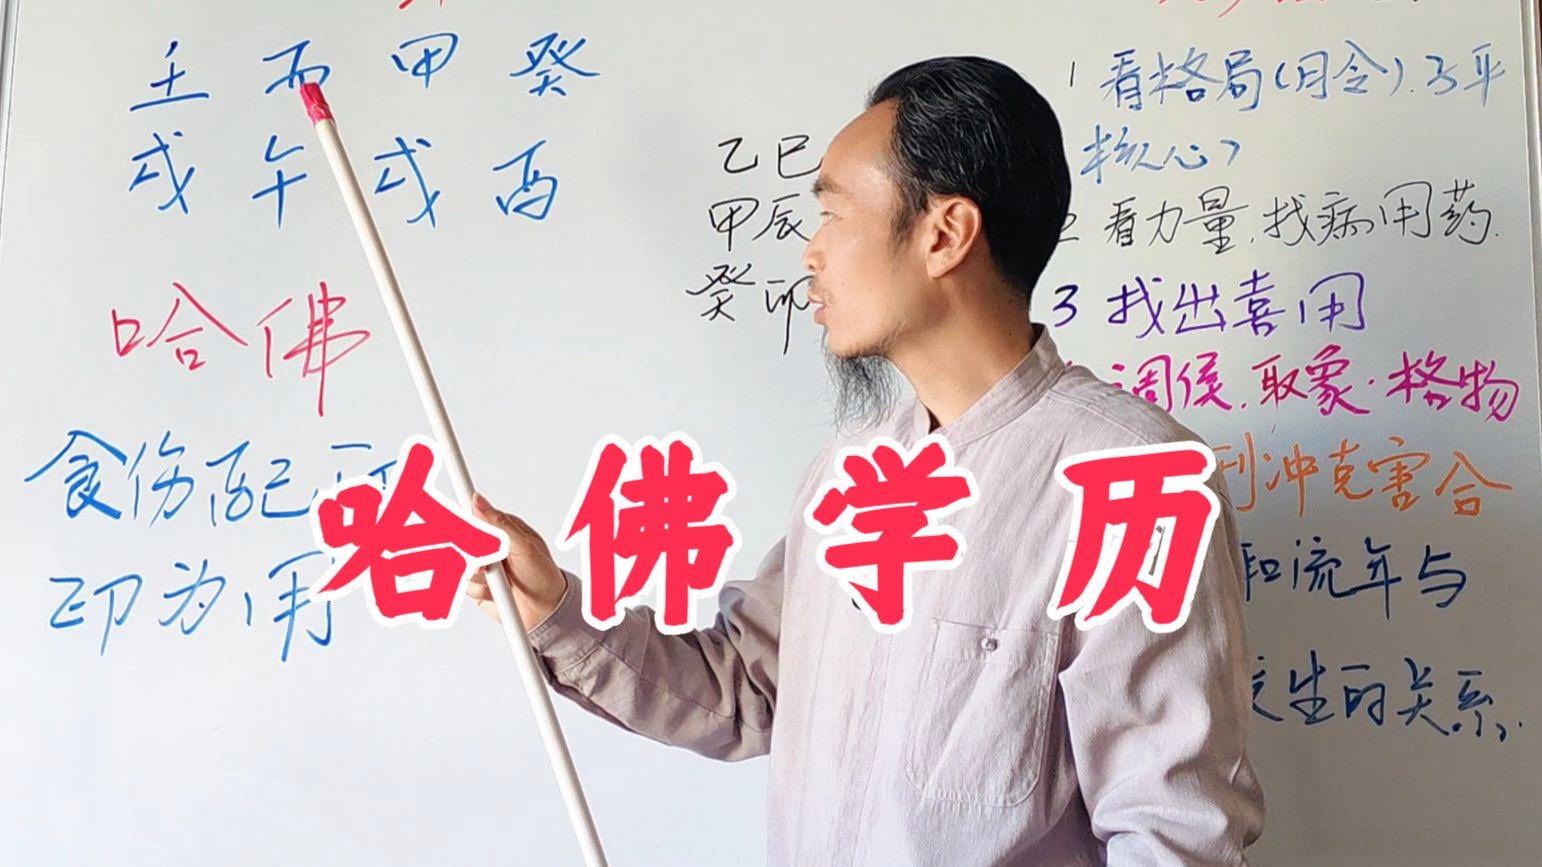 壬 丙 甲 癸
戌 午 戌 酉
哈佛
食伤配
印为用
乙巳
甲辰
癸卯
1 看格局(月令).子平
核心7
2 看力量.找病用药.
3 找出喜用
调侯.取象.格物
刑冲克害合
和流年与
生的关系.
哈佛学历